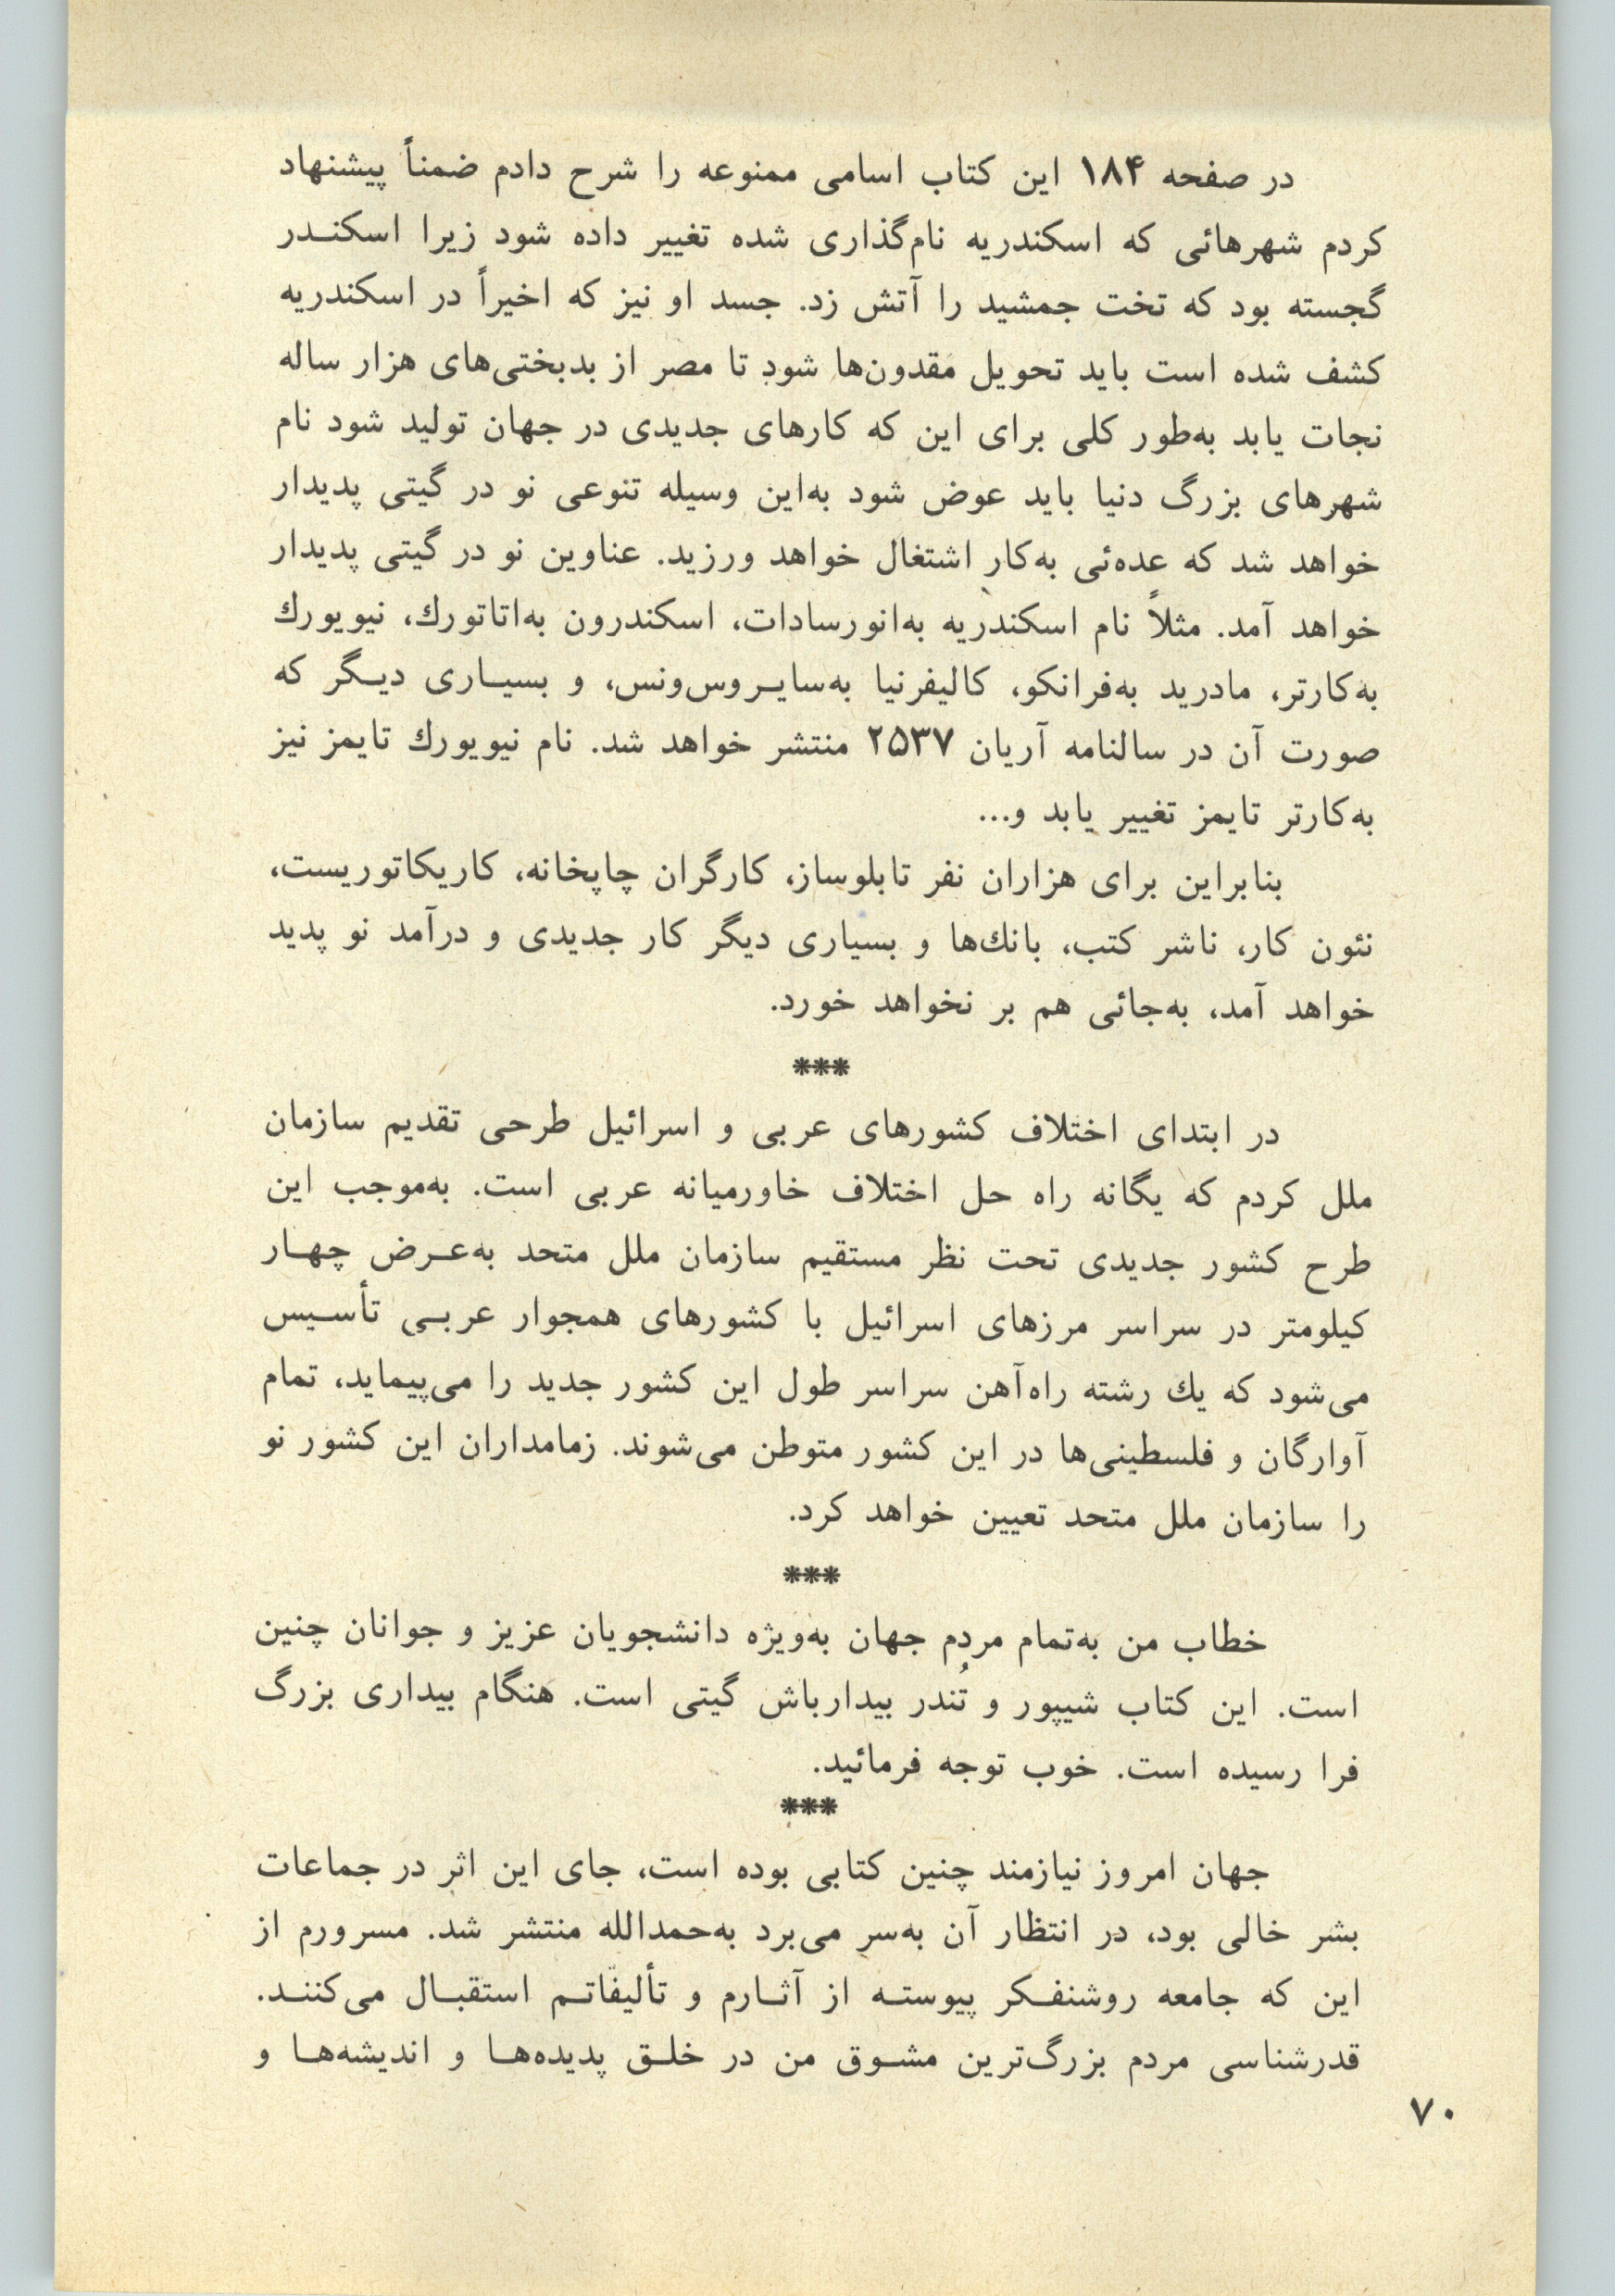 در صفحه ۱۸۴ این کتاب اسامی ممنوعه را شرح دادم ضمناً پیشنهاد
کردم شهرهائی که اسکندریه نام‌گذاری شده تغییر داده شود زیرا اسکنـدر
گجسته بود که تخت جمشید را آتش زد. جسد او نیز که اخیراً در اسکندریه
کشف شده است باید تحویل مقدون‌ها شود تا مصر از بدبختی‌های هزار ساله
نجات یابد به‌طور کلی برای این که کارهای جدیدی در جهان تولید شود نام
شهرهای بزرگ دنیا باید عوض شود به‌این وسیله تنوعی نو در گیتی پدیدار
خواهد شد که عده‌ئی به‌کار اشتغال خواهد ورزید. عناوین نو در گیتی پدیدار
خواهد آمد. مثلاً نام اسکندریه به‌انورسادات، اسکندرون به‌اتاتورك، نیویورك
به‌کارتر، مادرید به‌فرانکو، کالیفرنیا به‌سایـروس‌ونس، و بسیـاری دیـگر که
صورت آن در سالنامه آریان ۲۵۳۷ منتشر خواهد شد. نام نیویورك تایمز نیز
به‌کارتر تایمز تغییر یابد و...
بنابراین برای هزاران نفر تابلوساز، کارگران چاپخانه، کاریکاتوریست،
نئون کار، ناشر کتب، بانك‌ها و بسیاری دیگر کار جدیدی و درآمد نو پدید
خواهد آمد، به‌جائی هم بر نخواهد خورد.
***
در ابتدای اختلاف کشورهای عربی و اسرائیل طرحی تقدیم سازمان
ملل کردم که یگانه راه حل اختلاف خاورمیانه عربی است. به‌موجب این
طرح کشور جدیدی تحت نظر مستقیم سازمان ملل متحد به‌عـرض چهـار
کیلومتر در سراسر مرزهای اسرائیل با کشورهای همجوار عربـی تأسـیس
می‌شود که یك رشته راه‌آهن سراسر طول این کشور جدید را می‌پیماید، تمام
آوارگان و فلسطینی‌ها در این کشور متوطن می‌شوند. زمامداران این کشور نو
را سازمان ملل متحد تعیین خواهد کرد.
***
خطاب من به‌تمام مردم جهان به‌ویژه دانشجویان عزیز و جوانان چنین
است. این کتاب شیپور و تُندر بیدارباش گیتی است. هنگام بیداری بزرگ
فرا رسیده است. خوب توجه فرمائید.
***
جهان امروز نیازمند چنین کتابی بوده است، جای این اثر در جماعات
بشر خالی بود، در انتظار آن به‌سر می‌برد به‌حمدالله منتشر شد. مسرورم از
این که جامعه روشنفـکر پیوستـه از آثـارم و تألیفاتـم استقبـال می‌کننـد.
قدرشناسی مردم بزرگ‌ترین مشـوق من در خلـق پدیده‌هـا و اندیشه‌هـا و
۷۰